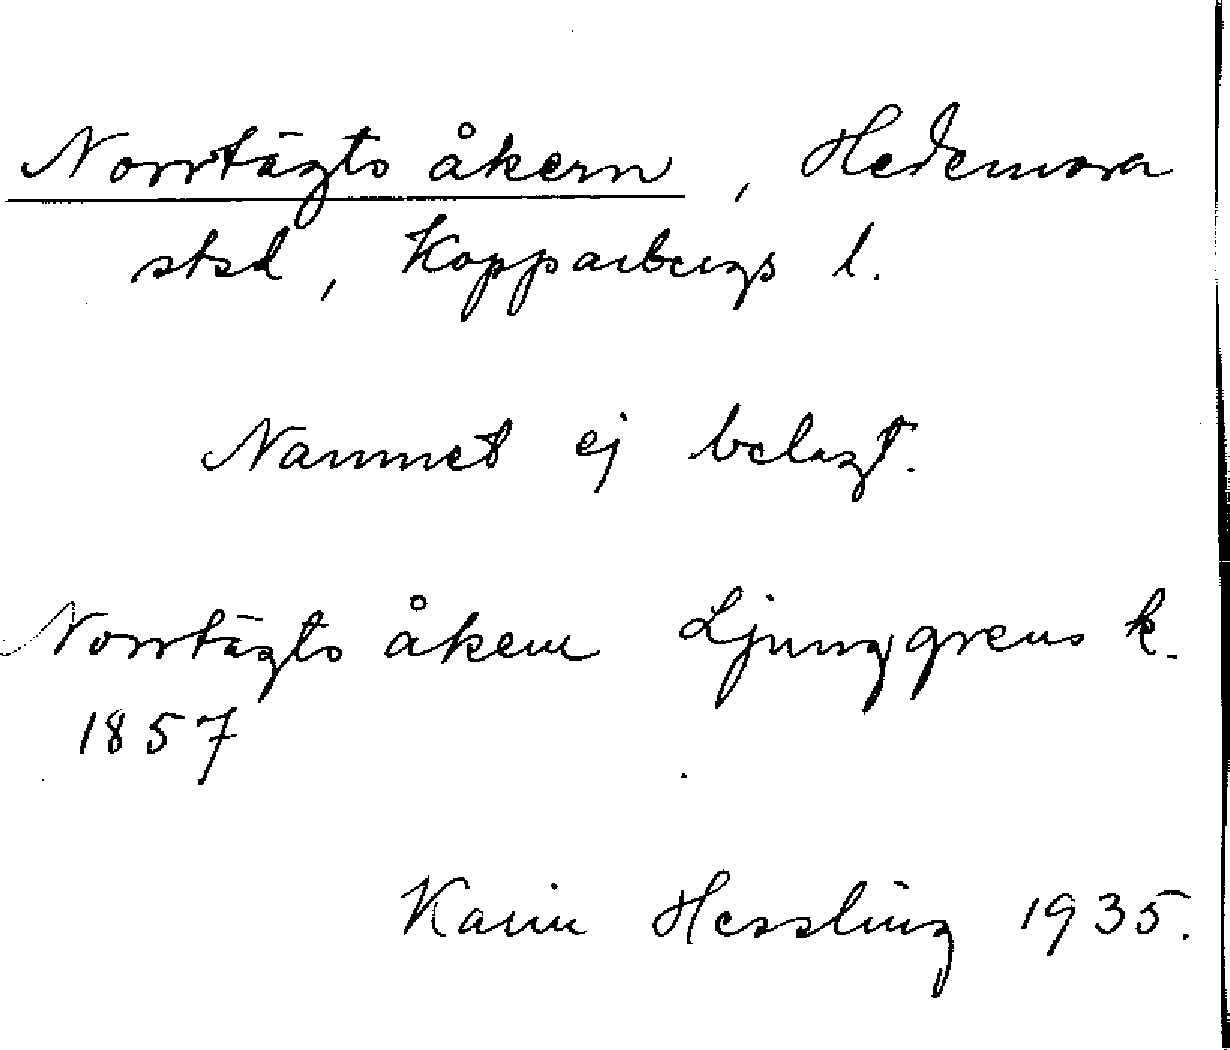 Norrtägts åkern, Hedemora
stad, Kopparbergs l.
Namnet ej belagt.
Norrtägts åkern Ljunggrens k.
1857
Karin Hessling 1935.